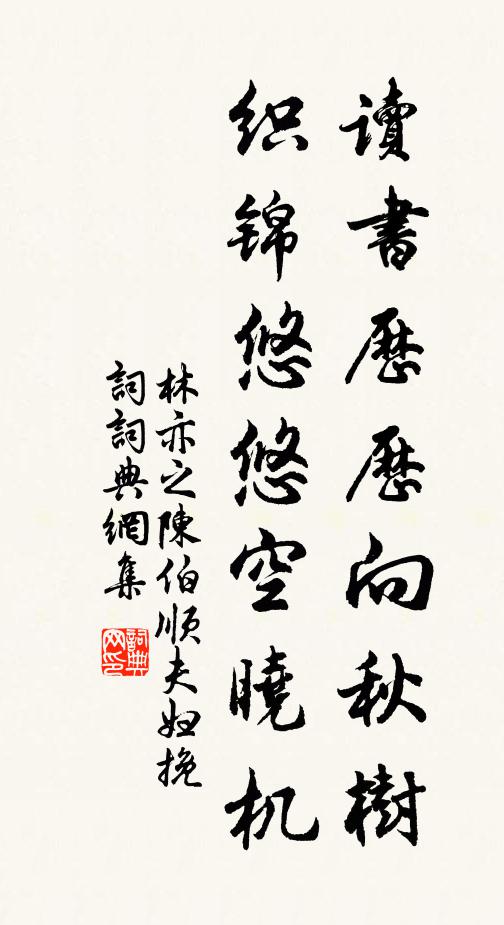 讀書歷歷向秋樹
织锦悠悠空曉机
林亦之陳伯順夫妇挽
詞詞典網集
詞典
网印